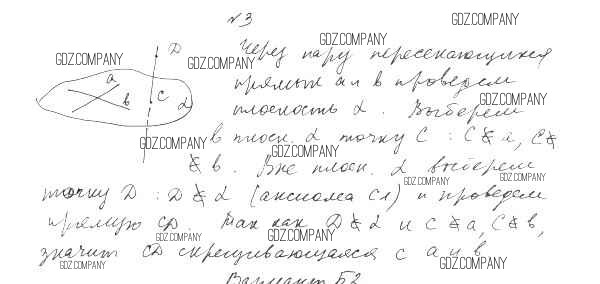 N 3
GDZ.COMPANY
Через пару пересекающихся
GDZ.COMPANY
D
GDZ.COMPANY
GDZ.COMPANY
прямых a и b проведем
a
b
C
α
плоскость α. Выберем
GDZ.COMPANY
в плоск. α точку C : C ∉ a, C ∉
GDZ.COMPANY
GDZ.COMPANY
∉ b. Вне плоск. α выберем
GDZ.COMPANY
GDZ.COMPANY
точку D : D ∉ α (аксиома C1) и проведем
прямую CD. Так как D ∉ α и C ∉ a, C ∉ b,
GDZ.COMPANY
GDZ.COMPANY
значит CD скрещивающаяся с a и b
GDZ.COMPANY
GDZ.COMPANY
Вариант Б2